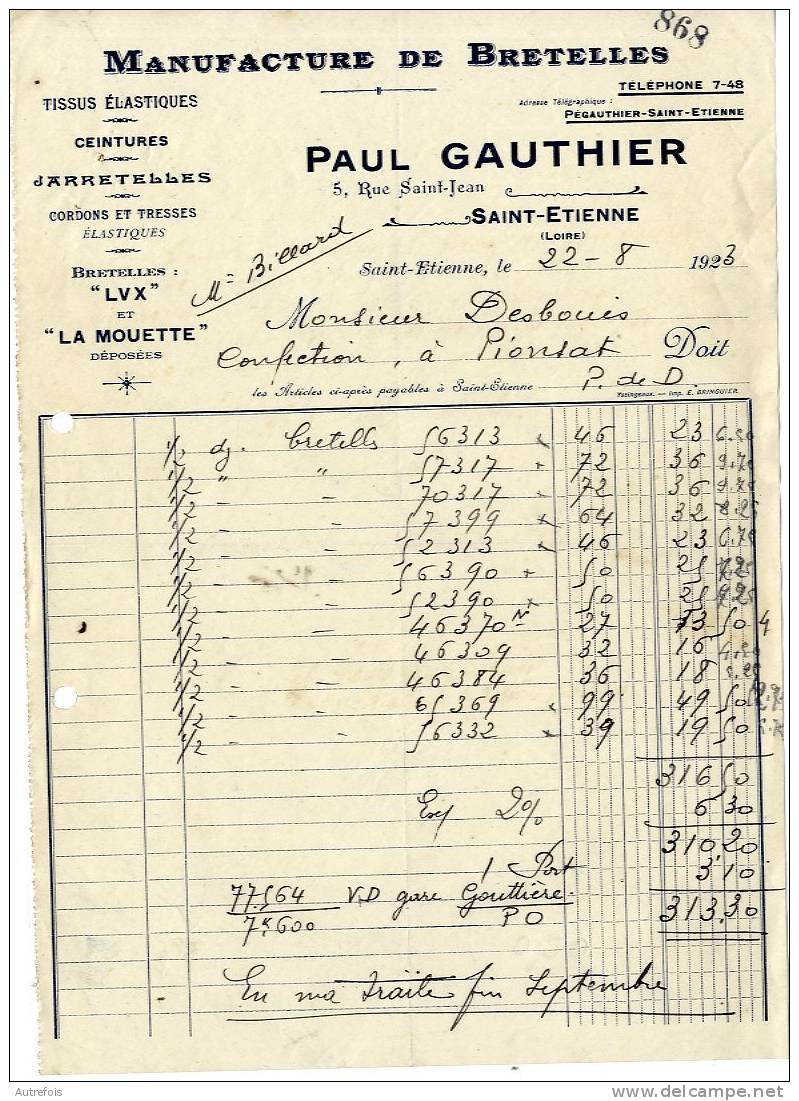 868
MANUFACTURE DE BRETELLES
TÉLÉPHONE 7-48
Adresse Télégraphique :
PÉGAUTHIER-SAINT-ETIENNE
TISSUS ÉLASTIQUES
CEINTURES
JARRETELLES
CORDONS ET TRESSES
ÉLASTIQUES
BRETELLES :
"LVX"
ET
"LA MOUETTE"
DÉPOSÉES
PAUL GAUTHIER
5, Rue Saint-Jean
SAINT-ETIENNE
(LOIRE)
Mr Billard
Saint-Etienne, le 22-8 1923
Monsieur Desbouis
Confection, à Pionsat Doit
les Articles ci-après payables à Saint-Etienne P. de D.
Yssingeaux. — Imp. E. BRINGUIER
1/2 dz. bretells 56313 x 46 23 6.50
1/2 " " 57317 x 72 36 9.75
1/2 " - 70317 x 72 36 9.75
1/2 - - 57399 x 64 32 8.25
1/2 - - 52313 x 46 23 6.75
1/2 - - 56390 x 50 25 7.25
1/2 - - 52390 x 50 25 7.25
1/2 - - 46370 N 27 13 50 4
1/2 - - 46309 32 16 4.50
1/2 - - 46384 36 18 5.25
1/2 - - 65369 x 99 49 50
1/2 - - 56332 x 39 19 50
316 50
Esc 2% 6 30
310.20
1 Port 3 10
77564 V.D gare Gouttière. 313.30
7K600 PO
En ma traite fin Septembre
Autrefois
http://www.delcampe.net